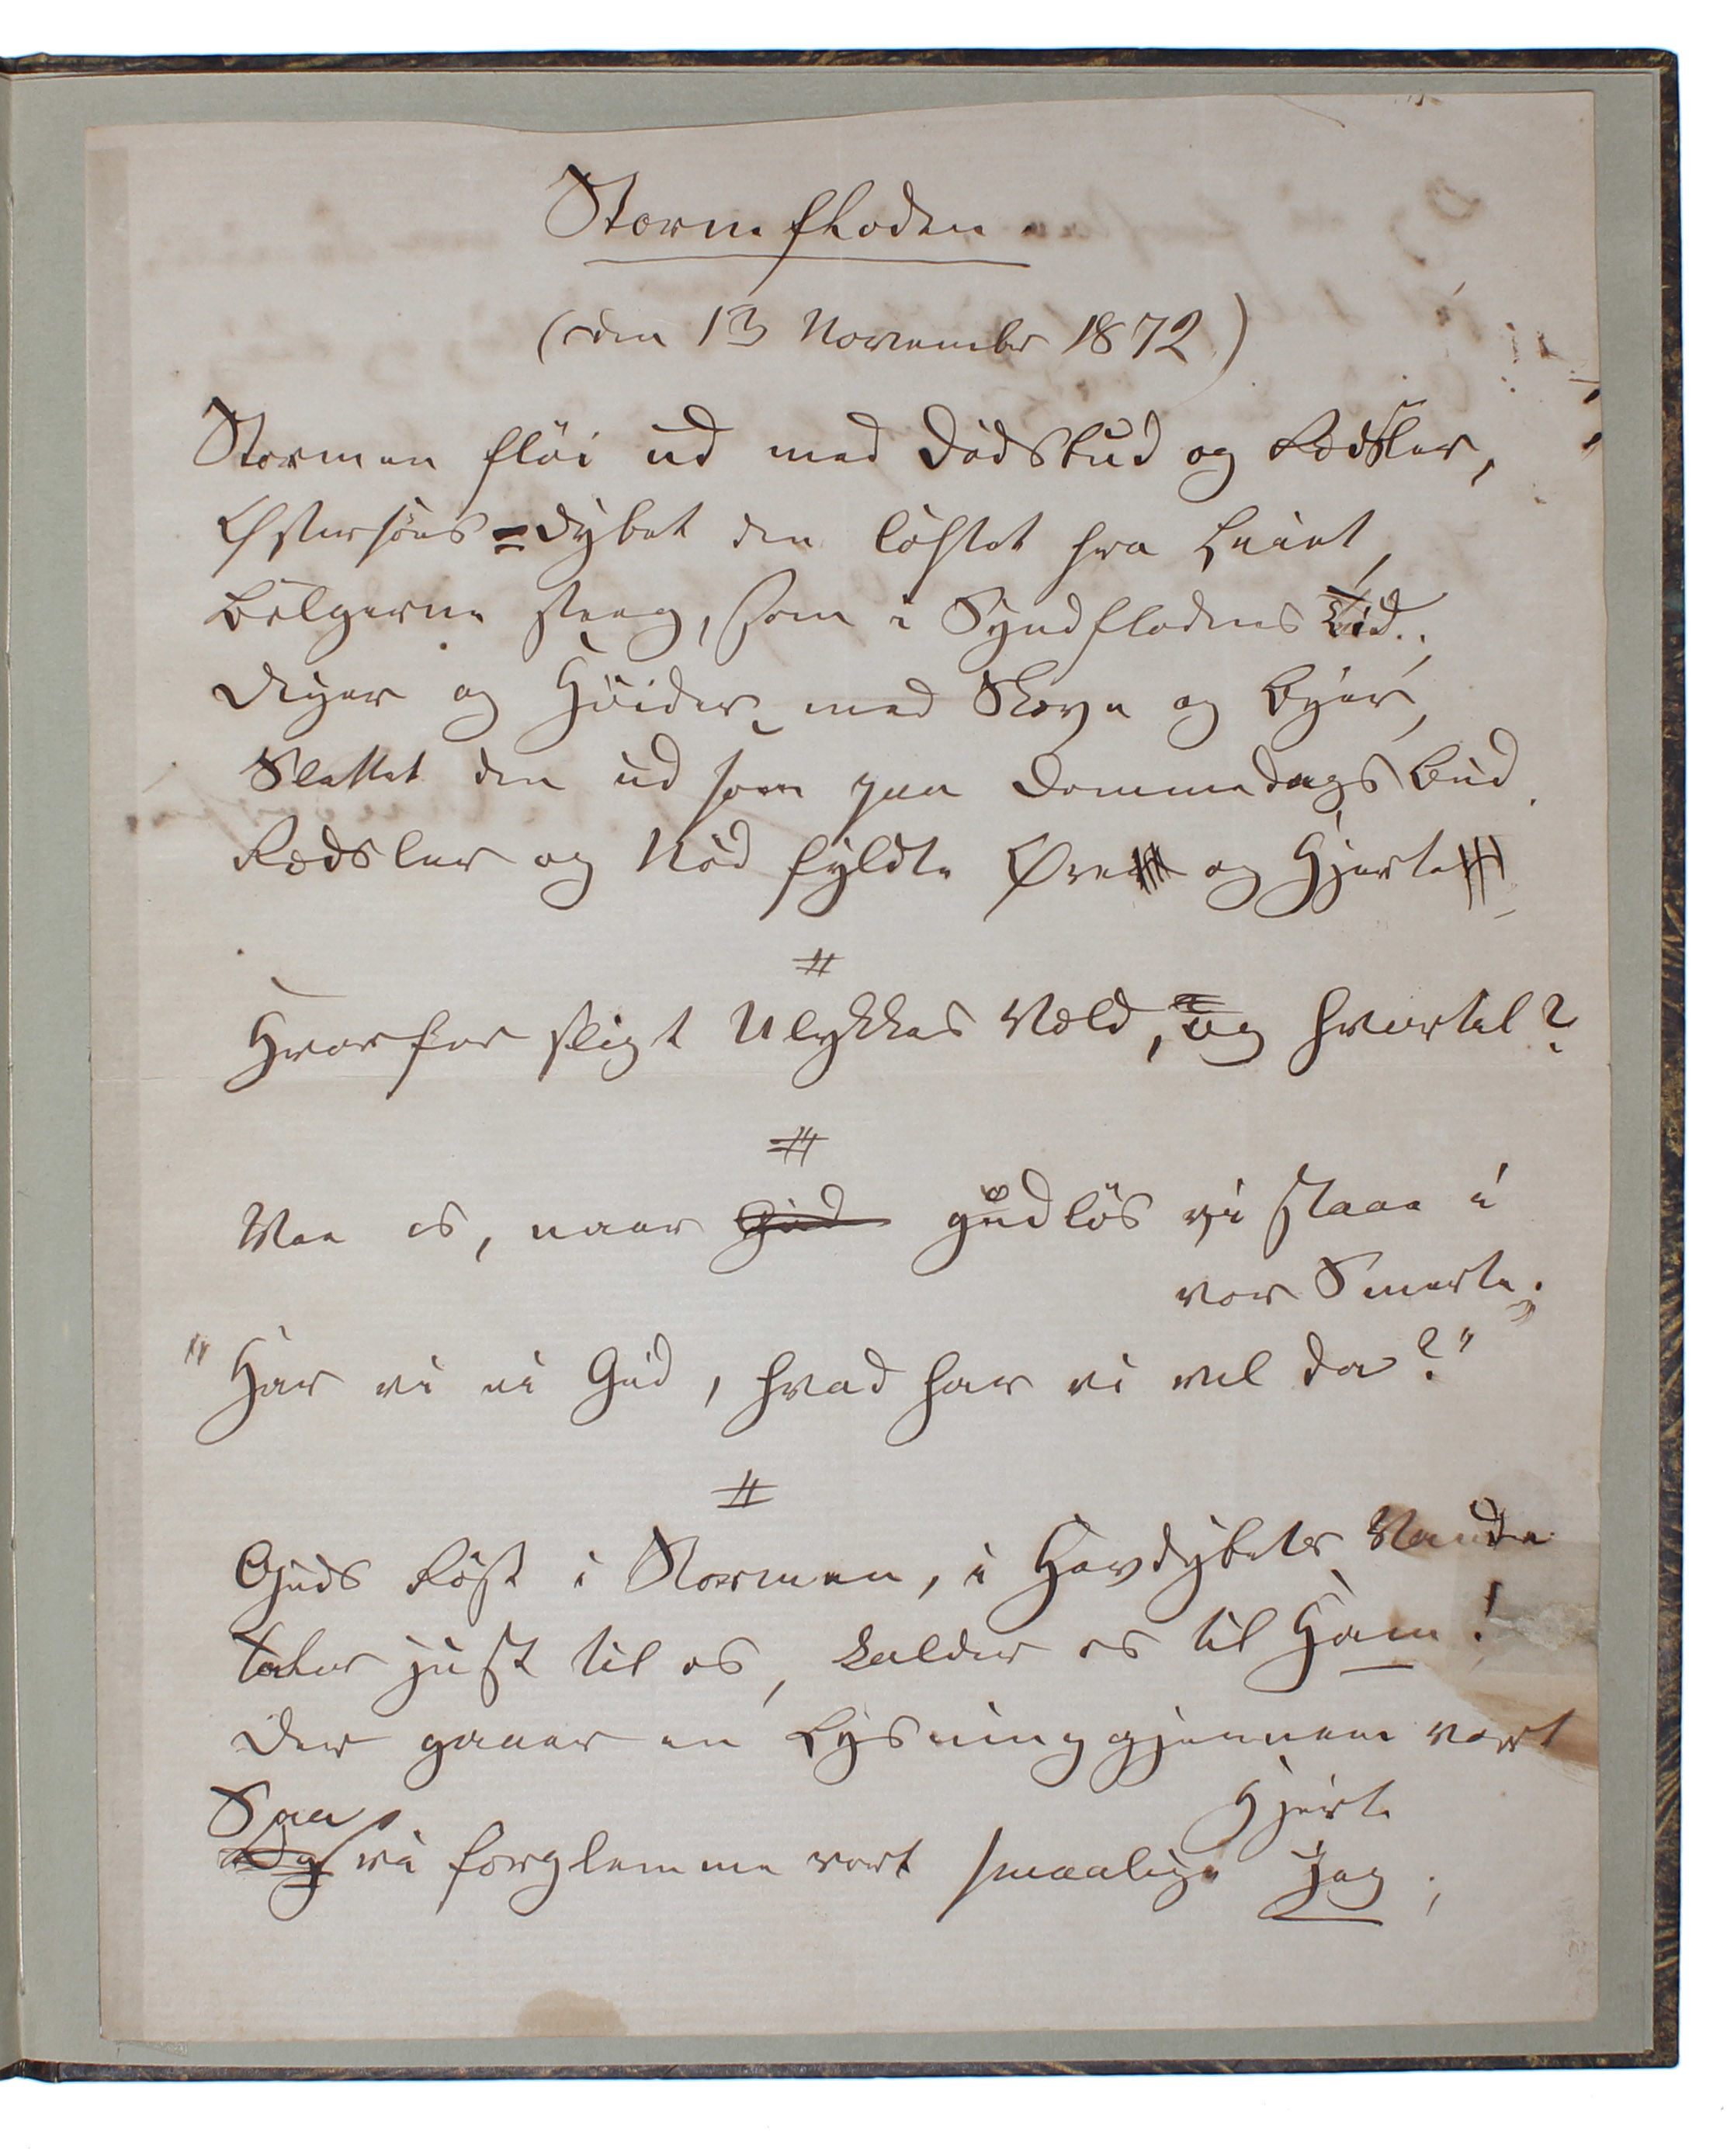 Stormfloden.
(den 13 November 1872)
Stormen fløi ud med Dødsbud og Rædsler,
Østersøes=Dybet den løftet fra Leiet,
Bølgerne steeg, som i Syndflodens Tid.,
Diger og Høider, med Skove og Byer,
Slettet den ud som paa Dommedags Bud.
Rædsler og Nød fyldte Øre og Hjerte
#
Hvorfor sligt Ulykkes Væld, og hvortil?
#
Vee os, naar Gud gudløs vi staae i
vor Smerte;
"Har vi ei Gud, hvad har vi vel da?"
#
Guds Røst i Stormen, i Havdybets Vande
taler just til os, kalder os til Ham!
Der gaaer en Lysning gjennem vort
Hjerte
Saa
Og vi forglemme vort smaalige Jeg;